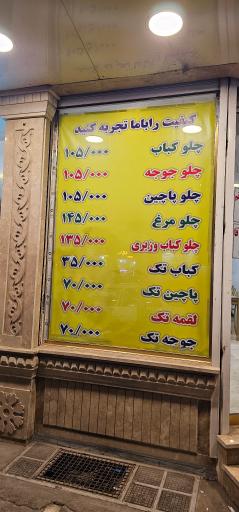 کیفیت را باما تجربه کنید
چلو کباب ۱۰۵/۰۰۰
چلو جوجه ۱۰۵/۰۰۰
چلو پاچین ۱۰۵/۰۰۰
چلو مرغ ۱۴۵/۰۰۰
چلو کباب وزیری ۱۳۵/۰۰۰
کباب تک ۳۵/۰۰۰
پاچین تک ۷۰/۰۰۰
لقمه تک ۷۰/۰۰۰
جوجه تک ۷۰/۰۰۰